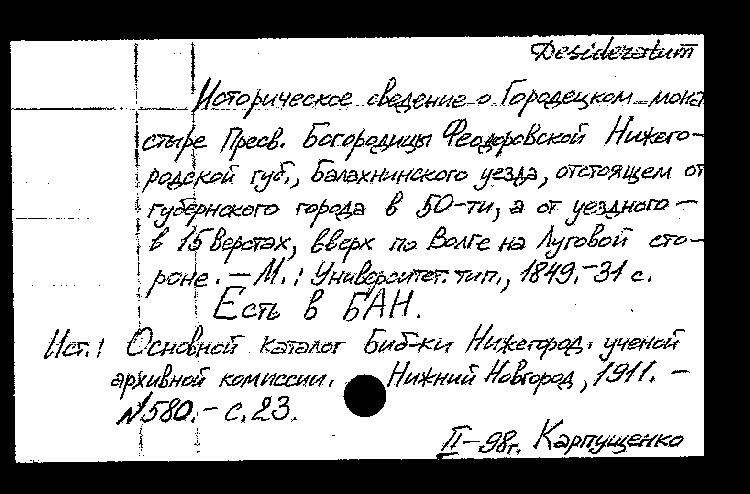 Desideratum
Историческое сведение о Городецком мона
стыре Пресв. Богородицы Феодоровской Нижего-
родской губ., Балахнинского уезда, отстоящем от
губернского города в 50-ти, а от уездного -
в 15 верстах, вверх по Волге на Луговой сто-
роне. - М.: Университет. тип., 1849. - 31 с.
Есть в БАН.
Ист.: Основной каталог Биб-ки Нижегород. ученой
архивной комиссии. Нижний Новгород, 1911. -
№580. - С. 23.
II-98г. Карпущенко